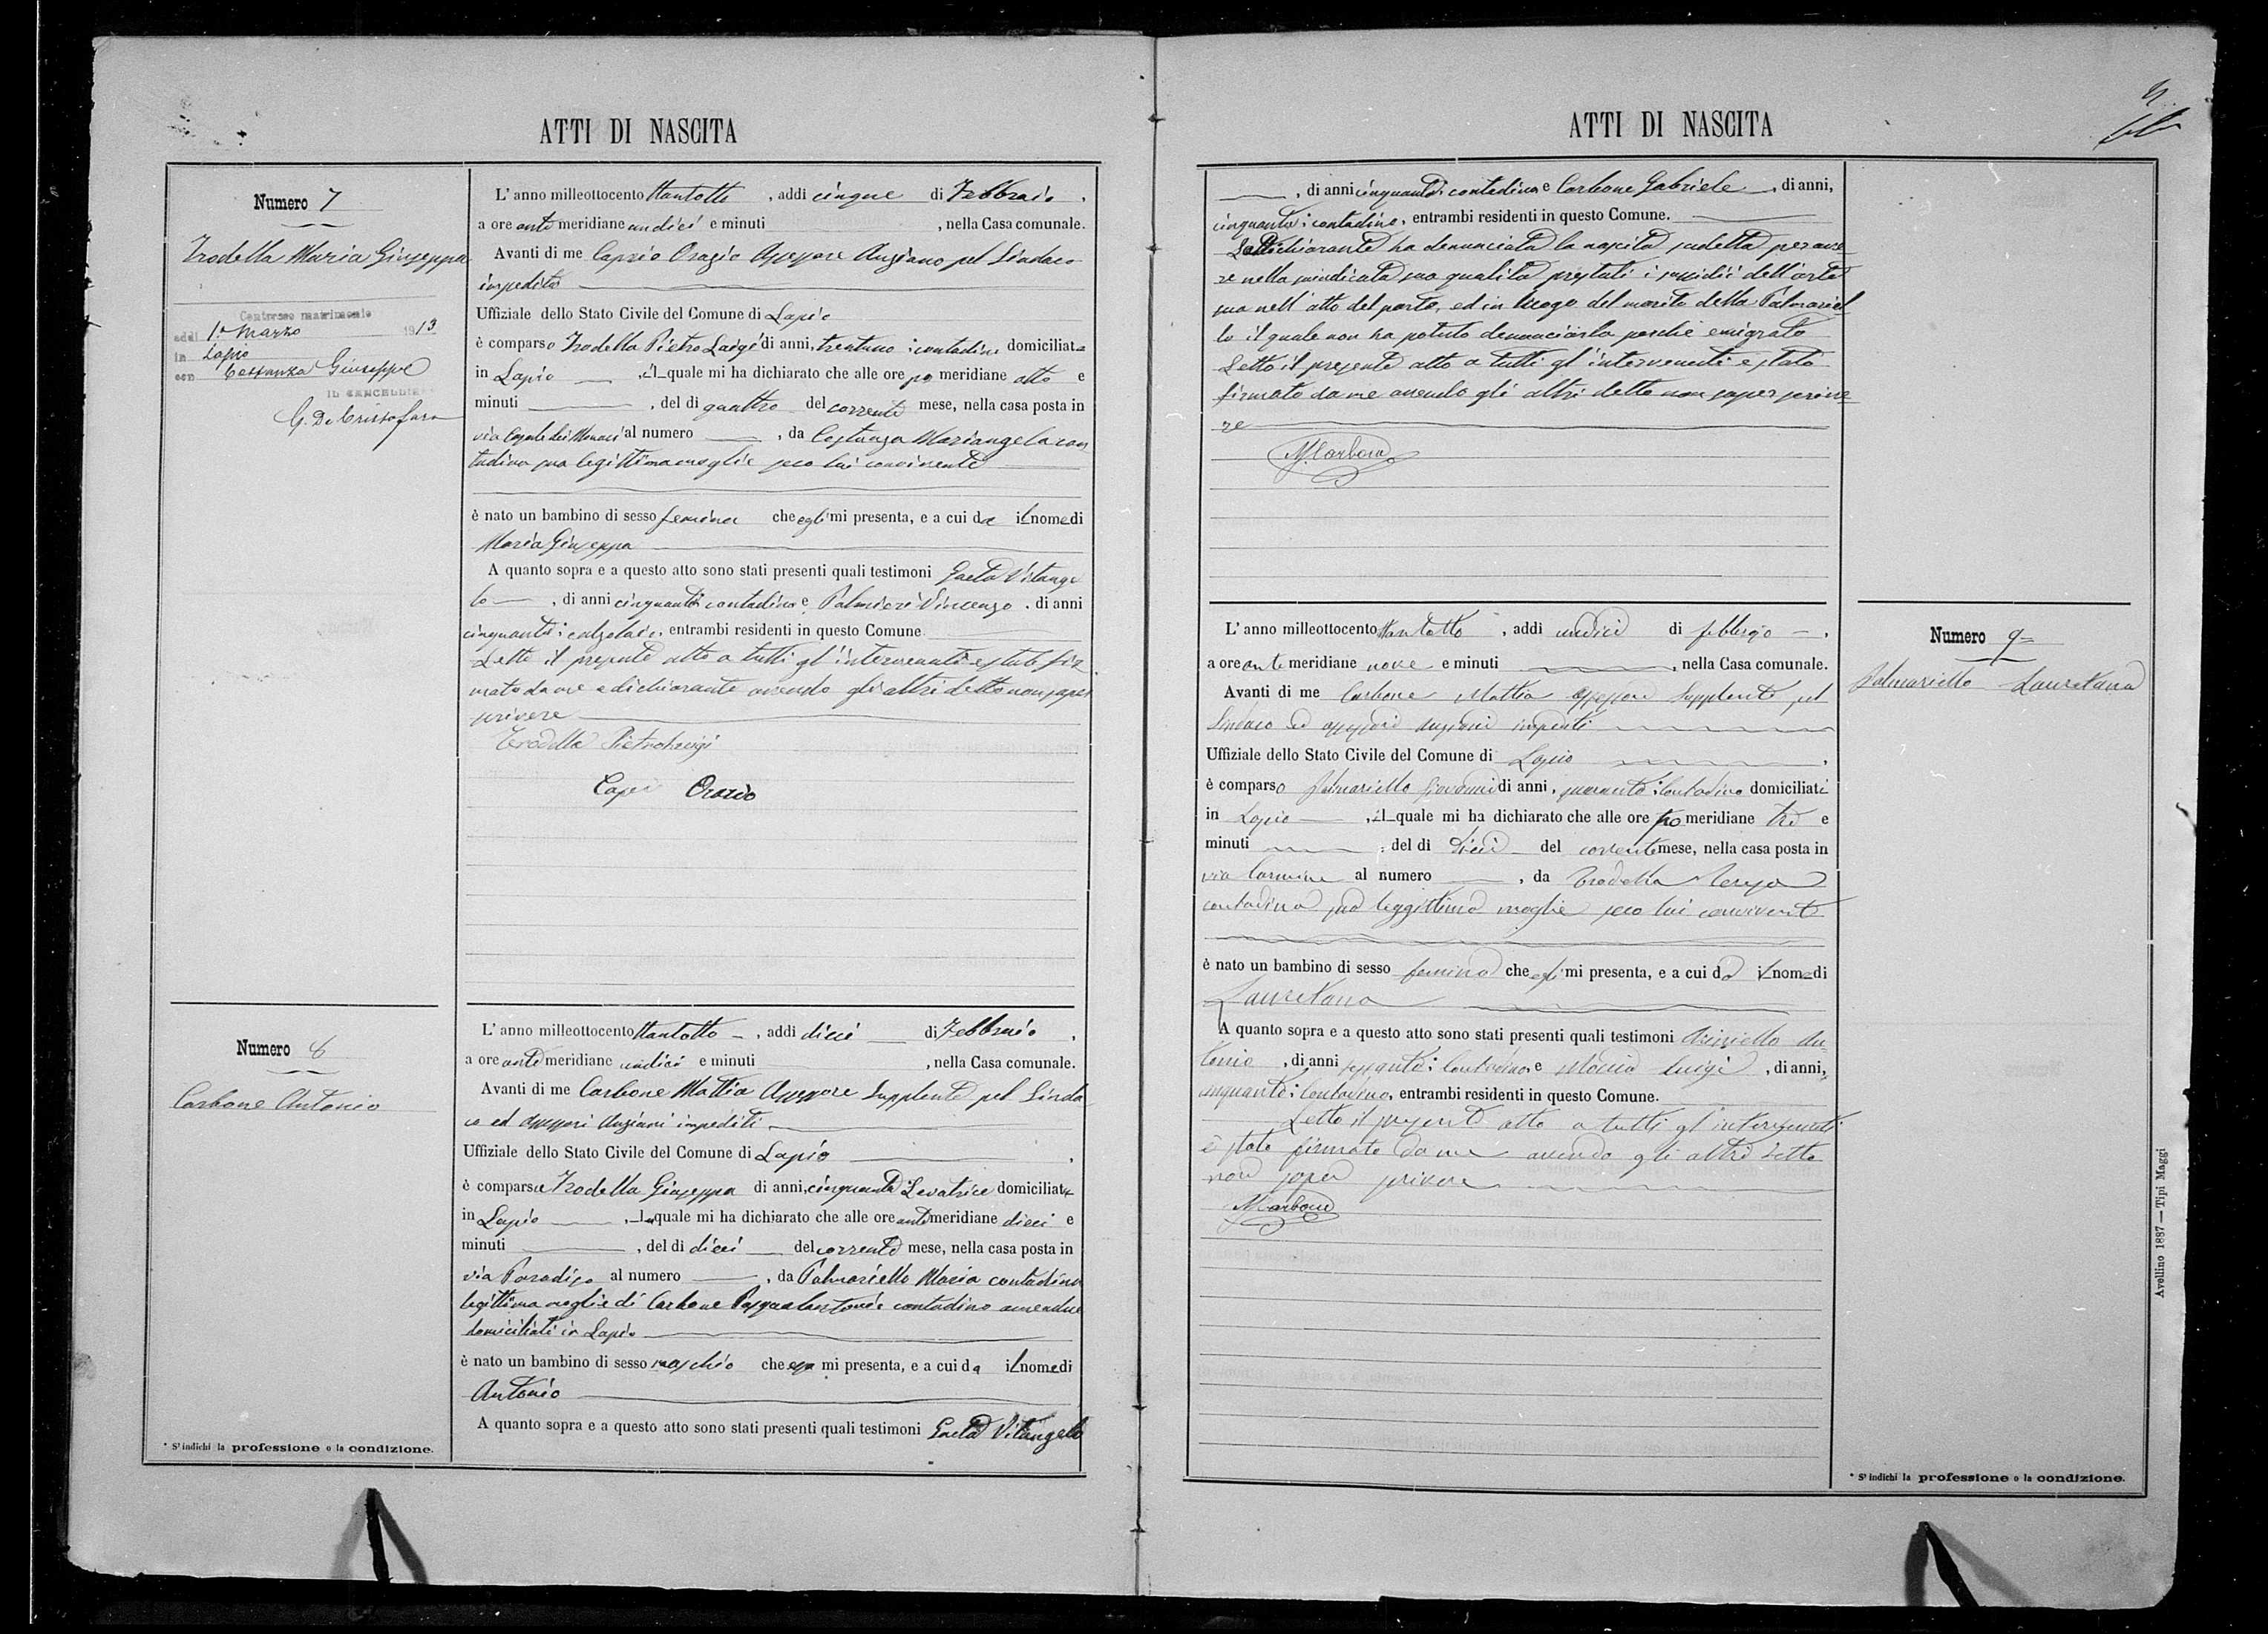 ATTI DI NASCITA
Numero 7
Trodella Maria Giuseppa
Contrasse matrimonio
addì 1° Marzo 1913
in Lapio
con Costanza Giuseppe
IL CANCELLIERE
G. De Cristofaro
L'anno milleottocento ttantotto, addì cinque di Febbraio,
a ore anti meridiane undici e minuti , nella Casa comunale.
Avanti di me Caprio Orazio Assessore Anziano pel Sindaco
impedito
Uffiziale dello Stato Civile del Comune di Lapio
è comparso Trodella Pietro Luigi di anni, trentuno; contadino domiciliato
in Lapio, il quale mi ha dichiarato che alle ore po meridiane otto e
minuti , del dì quattro del corrente mese, nella casa posta in
via Casale dei Monaci al numero , da Costanza Mariangela con
tadina sua legittima moglie seco lui convivente
è nato un bambino di sesso femina che egli mi presenta, e a cui da il nome di
Maria Giuseppa
A quanto sopra e a questo atto sono stati presenti quali testimoni Gaeta Vitange
lo, di anni cinquanta contadino e Palmieri Vincenzo, di anni
cinquanta; calzolaio, entrambi residenti in questo Comune.
Letto il presente atto a tutti gl'intervenuti è stato fir
mato da me e dichiarante avendo gli altri detto non saper
scrivere
Trodella Pietroluigi
Orazio
Numero 8
Carbone Antonio
L'anno milleottocento ttantotto, addì dieci di Febbraio,
a ore anti meridiane undici e minuti , nella Casa comunale.
Avanti di me Carbone Mattia Assessore Supplente pel Sinda
co ed Assessori Anziani impediti
Uffiziale dello Stato Civile del Comune di Lapio,
è comparsa Trodella Giuseppa di anni, cinquanta Levatrice domiciliata
in Lapio, la quale mi ha dichiarato che alle ore anti meridiane dieci e
minuti , del dì dieci del corrente mese, nella casa posta in
via Paradiso al numero , da Palmariello Maria contadina
legittima moglie di Carbone Pasqualantonio contadino amendue
domiciliati in Lapio
è nato un bambino di sesso maschio che essa mi presenta, e a cui da il nome di
Antonio
A quanto sopra e a questo atto sono stati presenti quali testimoni Gaeta Vitangelo
* S'indichi la professione o la condizione.
ATTI DI NASCITA
, di anni cinquanta; contadino e Carbone Gabriele, di anni,
cinquanta; contadino, entrambi residenti in questo Comune.
La dichiarante ha denunciata la nascita sudetta per ave
re nella suindicata sua qualità prestati i sussidii dell'arte
sua nell'atto del parto, ed in luogo del marito della Palmariel
lo il quale non ha potuto denunciarla perchè emigrato
Letto il presente atto a tutti gl'intervenuti è stato
firmato da me avendo gli altri detto non saper scrive
re
M. Carbone
L'anno milleottocento ttantotto, addì undici di febbraio,
a ore anti meridiane nove e minuti , nella Casa comunale.
Avanti di me Carbone Mattia assessore Supplente pel
Sindaco ed assessori anziani impediti
Uffiziale dello Stato Civile del Comune di Lapio,
è comparso Palmariello Giovanni di anni, quaranta; Contadino domiciliati
in Lapio, il quale mi ha dichiarato che alle ore po meridiane tre e
minuti , del dì dieci del corrente mese, nella casa posta in
via Carmine al numero , da Trodella Teresa
contadina sua leggittima moglie seco lui convivente
è nato un bambino di sesso femina che egli mi presenta, e a cui da il nome di
Lauretana
A quanto sopra e a questo atto sono stati presenti quali testimoni An
tonio, di anni sessanta; Contadino, e Luigi, di anni,
cinquanta; Contadino, entrambi residenti in questo Comune.
Letto il presente atto a tutti gl'intervenuti
è stato firmato da me avendo gli altri detto
non saper scrivere
M. Carbone
Numero 9
Palmariello Lauretana
* S'indichi la professione o la condizione.
Avellino 1887 — Tipi Maggi